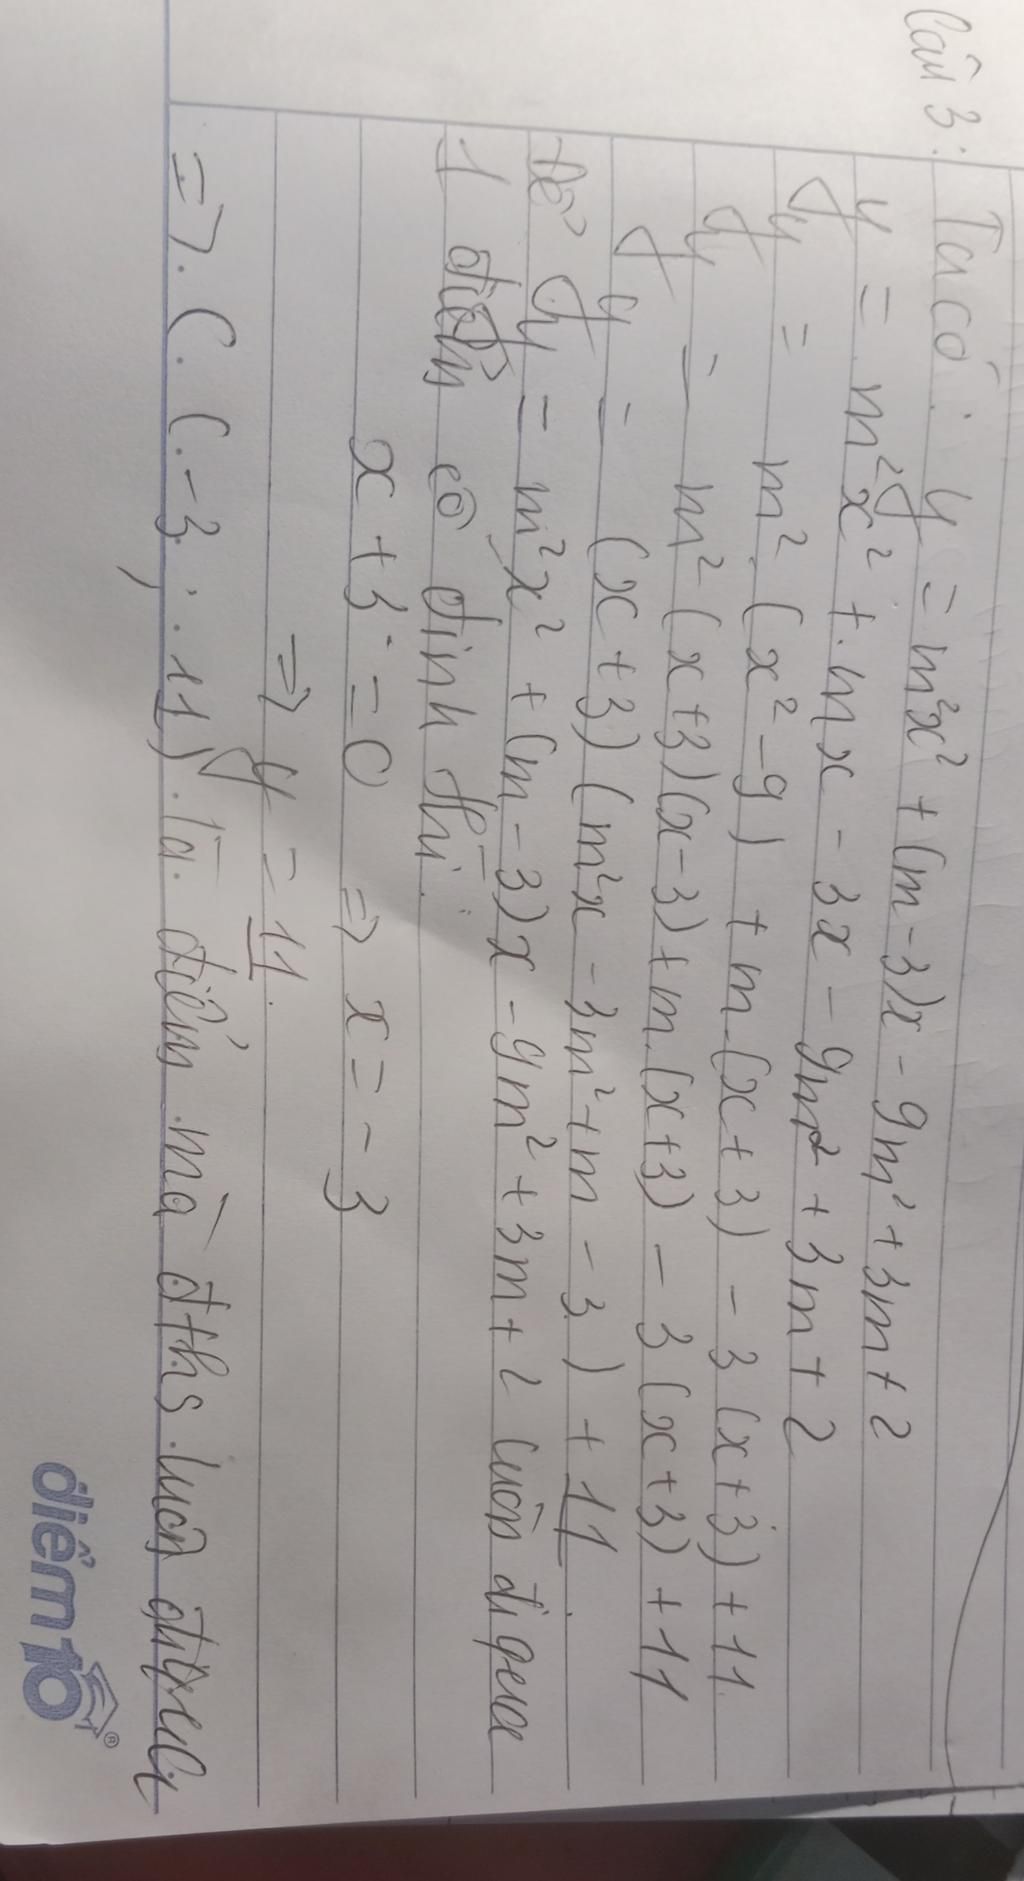 Câu 3:
Ta có: y = m²x² + (m-3)x - 9m² + 3m + 2
y = m²x² + mx - 3x - 9m² + 3m + 2
y = m²(x²-9) + m(x+3) - 3(x+3) + 11
y = m²(x+3)(x-3) + m(x+3) - 3(x+3) + 11
y = (x+3)(m²x - 3m² + m - 3) + 11
Để y = m²x² + (m-3)x - 9m² + 3m + 2 luôn đi qua
1 điểm cố định thì:
x + 3 = 0 => x = -3
=> y = 11.
=> C(-3; 11) là điểm mà đths luôn đi qua
điểm10®